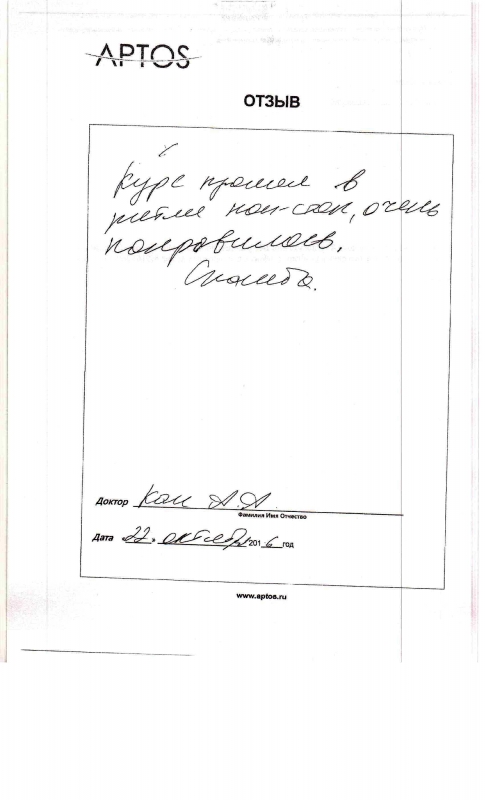 APTOS
ОТЗЫВ
Курс прошел в
ритме нон-стоп, очень
понравилось.
Спасибо.
Доктор Кан А.А.
Фамилия Имя Отчество
Дата 22. октября 2016 год
www.aptos.ru